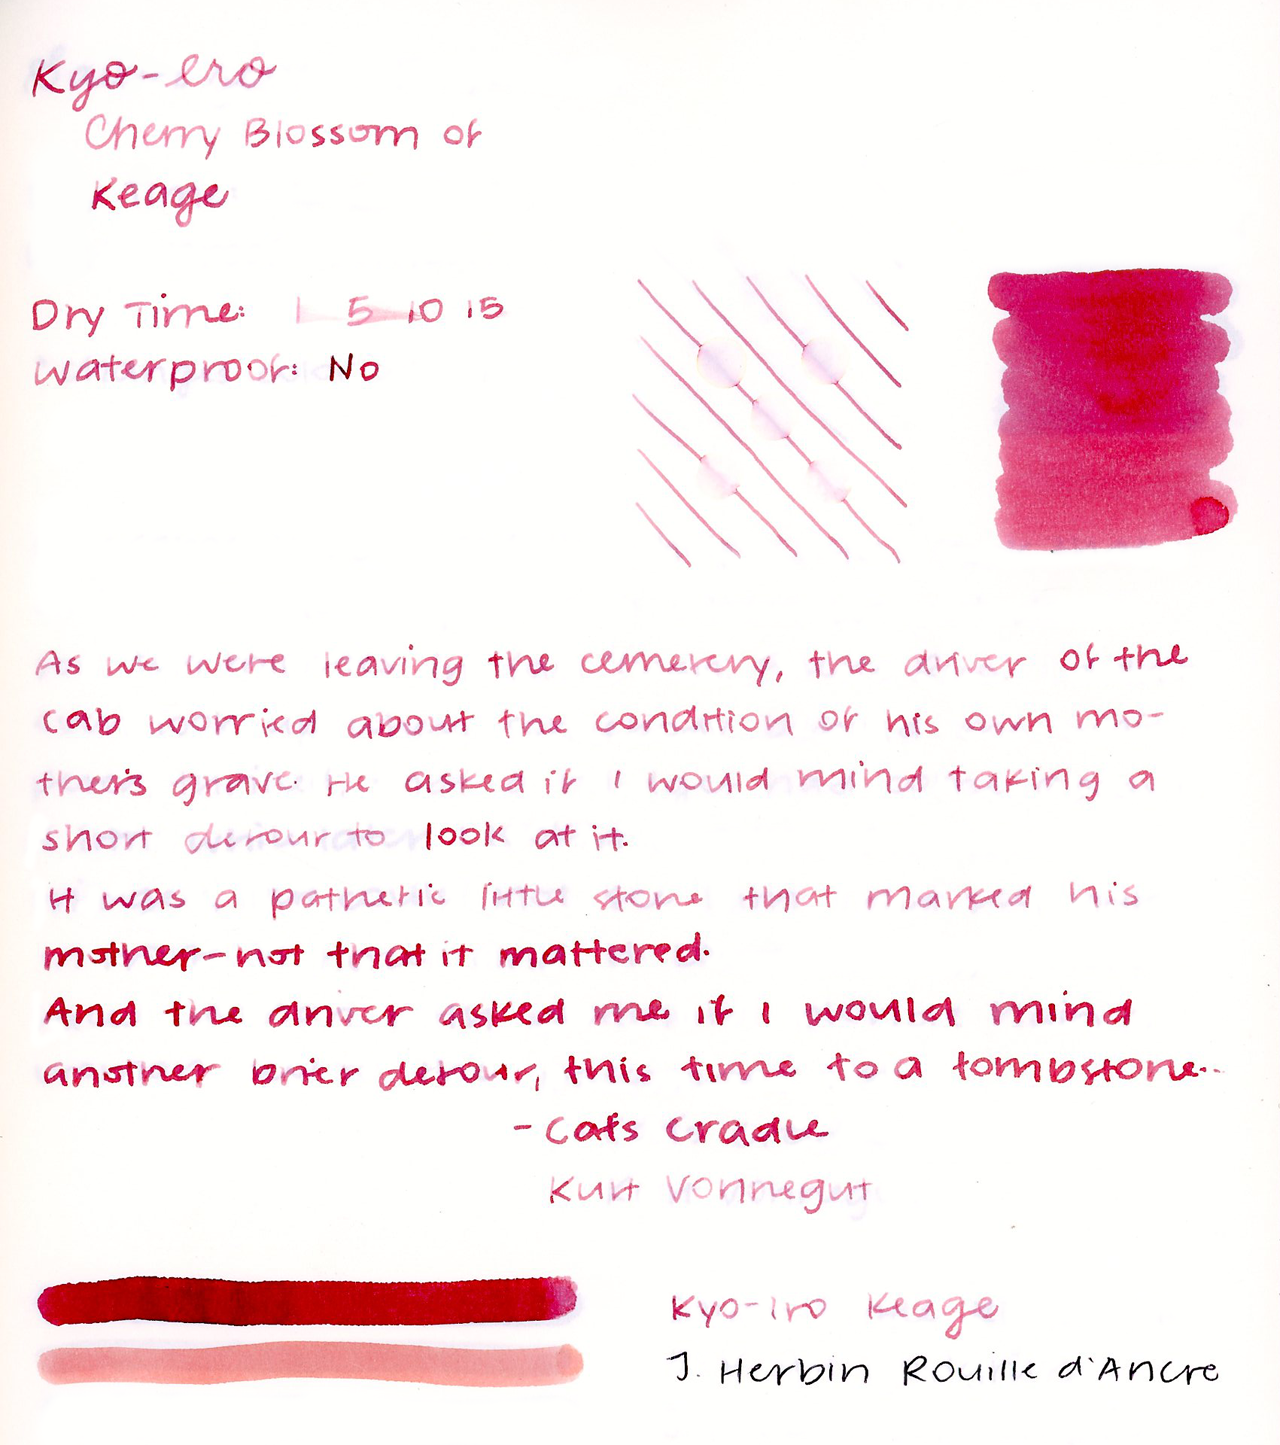 Kyo-iro
Cherry Blossom of
Keage
Dry Time: 1 5 10 15
Waterproof: No
As we were leaving the cemetery, the driver of the
cab worried about the condition of his own mo-
ther's grave. He asked if I would mind taking a
short detour to look at it.
It was a pathetic little stone that marked his
mother-not that it mattered.
And the driver asked me if I would mind
another brief detour, this time to a tombstone..
- Cat's Cradle
Kurt Vonnegut
Kyo-iro Keage
J. Herbin Rouille d'Ancre